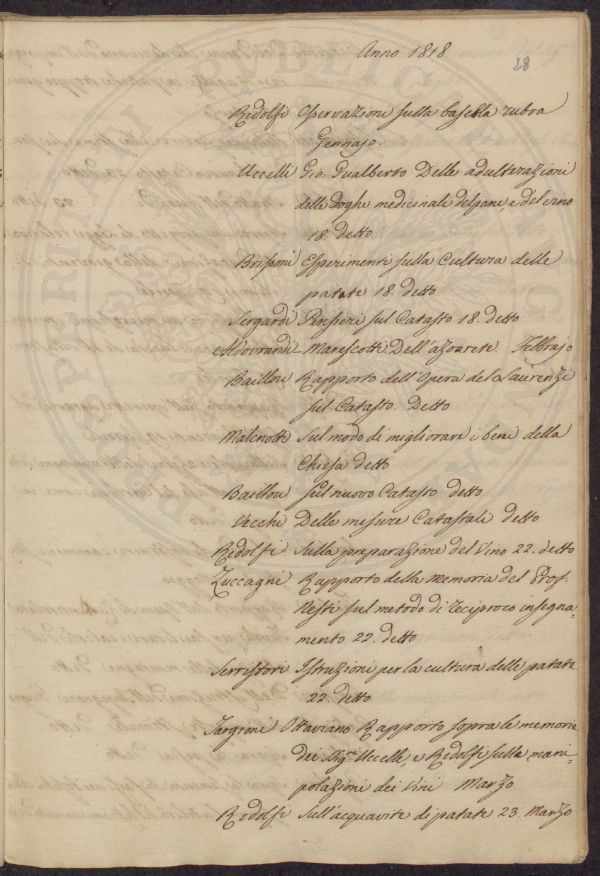 Anno 1818
28
Ridolfi Osservazioni sulla basella rubra
Gennajo.
Uccelli Gio. Gualberto Delle adulterazioni
delle droghe medicinale del pane, e del vino
18. detto
Brissoni Esperimenti sulla Cultura delle
patate 18. detto
Sergardi Pensieri sul Catasto 18. detto
Aldovrandi Marescotti Dell'azoturete Febbrajo
Baillou Rapporto dell'Opera del Laurenzi
sul Catasto. Detto
Malenotti Sul modo di migliorare i beni della
Chiesa detto
Baillou Sul nuovo Catasto detto
Vecchi Delle misure Catastali detto
Ridolfi Sulla preparazione del Vino 22. detto
Zuccagni Rapporto della memoria del Prof.
Nesti sul metodo di reciproco insegna=
mento 22. detto
Serristori Istruzioni per la cultura delle patate
22. detto
Targioni Ottaviano Rapporto sopra le memorie
dei Sigri Uccelli, e Ridolfi sulla mani=
polazioni dei Vini Marzo
Ridolfi Sull'acquavite di patate 23. Marzo